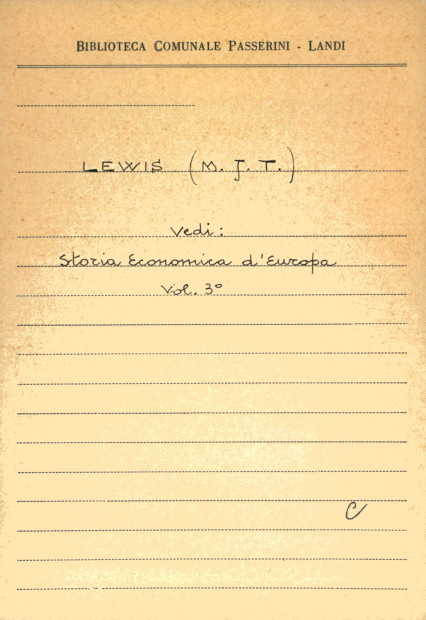 BIBLIOTECA COMUNALE PASSERINI - LANDI
LEWIS (M. J. T.)
Vedi:
Storia Economica d'Europa
Vol. 3°
C